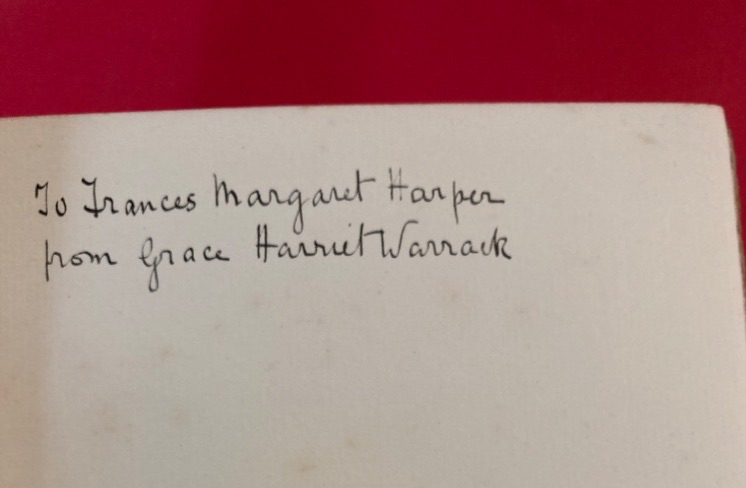 To Frances Margaret Harper
from Grace Harriet Warrack